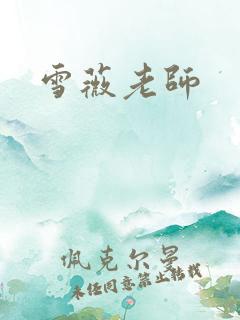 雪薇老師
佩克尔曼
未经同意禁止转载